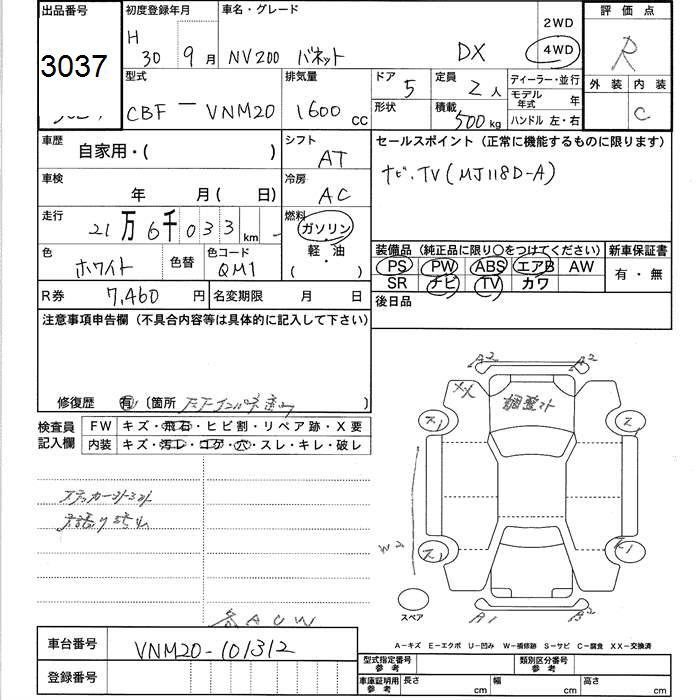 出品番号 初度登録年月 車名・グレード 評価点
3037
H 30 9月 NV200 バネット DX 2WD 4WD R
外装 内装
C
型式 排気量 ドア 定員 ディーラー・並行
CBF - VNM20 1600 CC 5 2人 モデル年式 年
形状 積載 500kg ハンドル 左・右
車歴 自家用・( ) シフト AT
セールスポイント (正常に機能するものに限ります)
ナビ.TV(MJ118D-A)
車検 年 月( 日) 冷房 AC
走行 21万6千033km 燃料 ガソリン・軽油・( )
色 ホワイト 色替 色コード QM1
装備品 (純正品に限り○をつけてください) 新車保証書
PS PW ABS エアB AW 有・無
SR ナビ TV カワ
R券 7,460円 名変期限 月 日
後日品
注意事項申告欄 (不具合内容等は具体的に記入して下さい)
修復歴 有 (箇所 )
検査員記入欄 FW キズ・飛石・ヒビ割・リペア跡・X要
内装 キズ・汚レ・コゲ・穴・スレ・キレ・破レ
A2 A2
XX 調整汁
W2
スペア
A1 B2
A-キズ E-エクボ U-凹み W-補修跡 S-サビ C-腐食 XX-交換済
車台番号 VNM20-101312
登録番号
型式指定番号 参考 類別区分番号 参考
車庫証明用 参考 長さ cm 幅 cm 高さ cm